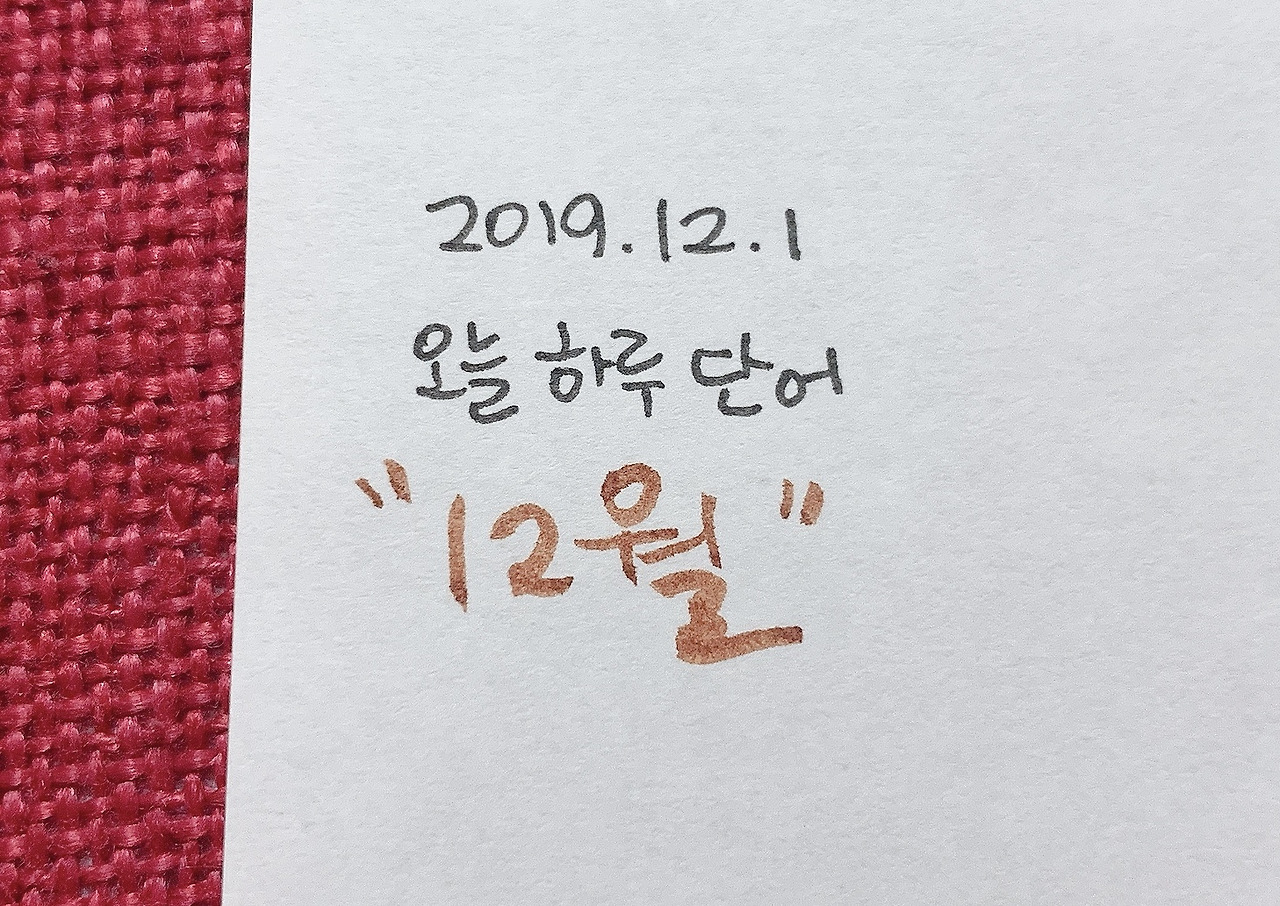 2019.12.1
오늘 하루 단어
"12월"